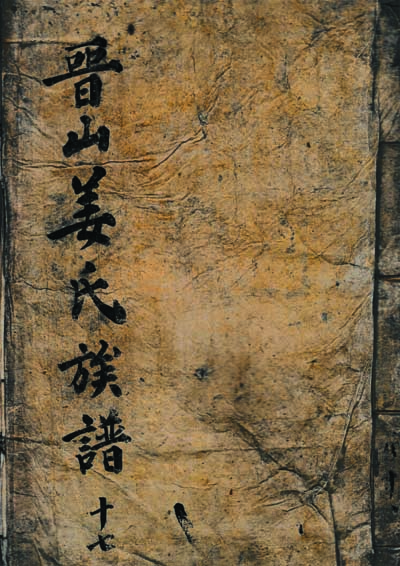 晉山姜氏族譜
十七